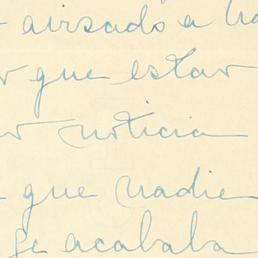 avisado a
que estar
noticia
que nadie
se acababa